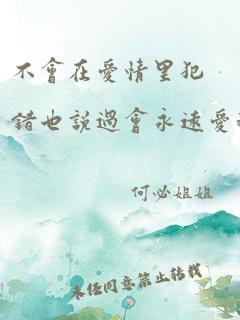 不會在愛情里犯
錯也說過會永遠愛
何必姐姐
未经同意禁止转载